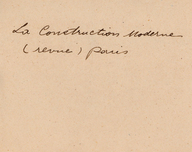 La Construction Moderne
(revue) Paris